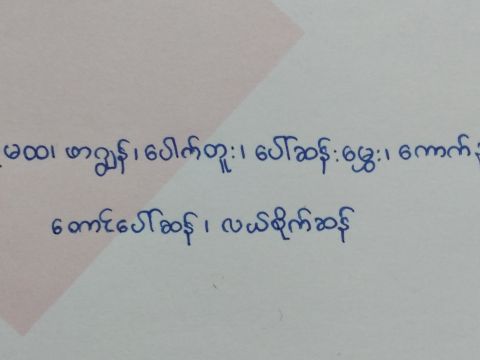 မထ၊ ဖာဂျွန်၊ ပေါက်တူး၊ ပေါ်ဆန်းမွှေး၊ ကောက်
တောင်ပေါ်ဆန်၊ လယ်စိုက်ဆန်